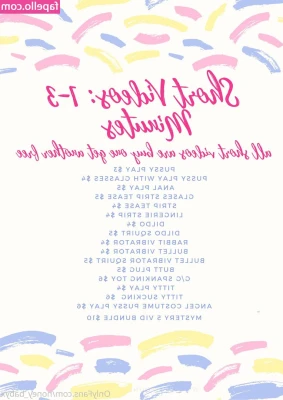 fapello.com
Short Videos: 1-3
Minutes
all short videos are buy one get another free
PUSSY PLAY $3
PUSSY PLAY WITH GLASSES $4
ANAL PLAY $5
CLASSES STRIP TEASE $5
STRIP TEASE $4
LINGERIE STRIP $4
DILDO $4
DILDO SQUIRT $5
RABBIT VIBRATOR $4
BULLET VIBRATOR $4
BULLET VIBRATOR SQUIRT $5
BUTT PLUG $5
C/C SPANKING TOY $6
TITTY PLAY $4
TITTY SUCKING $4
ANGEL COSTUME PUSSY PLAY $6
MYSTERY 5 VID BUNDLE $10